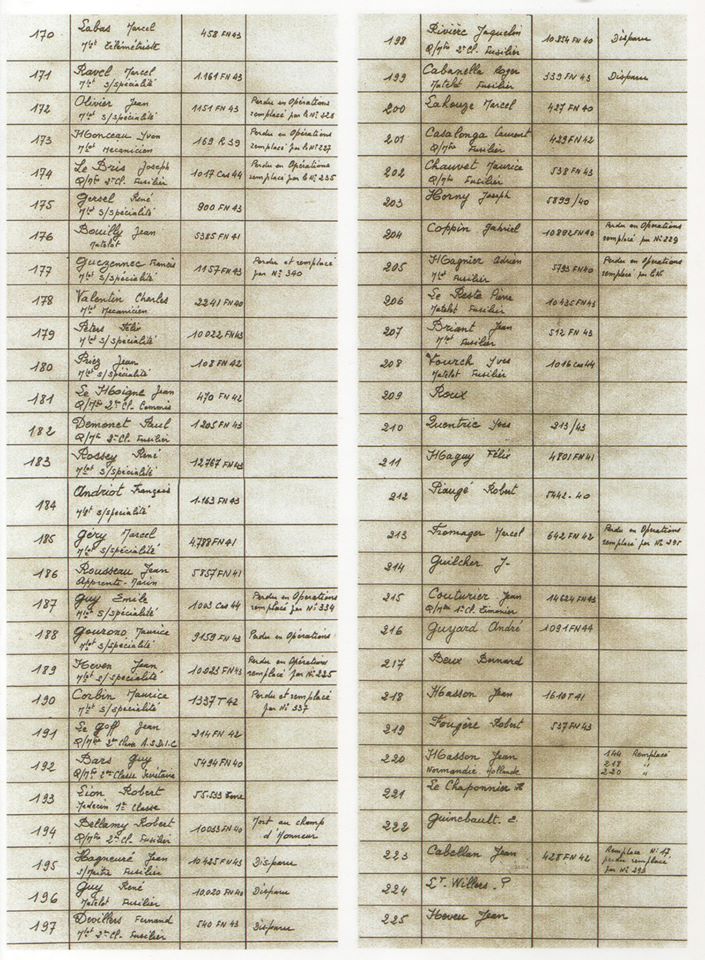 170 Labas Marcel 458 FN 43
Mlot Télémétriste
171 Ravel Marcel 1.161 FN 43
Mlot S/spécialité
172 Olivier Jean 1151 FN 43 Perdu en Opérations
Mlot S/spécialité remplacé par le N°
173 Monceau Yvon 169 R 39 Perdu en Opérations
Mlot Mecanicien remplacé par le N°
174 Le Bris Joseph 1017 Cas 44 Perdu en Opérations
Q/Mtre 2e Cl. Fusilier remplacé par le N° 235
175 Gersel René 900 FN 43
Mlot S/spécialité
176 Bouilly Jean 5385 FN 41
Matelot
177 Guezennec Francis 1157 FN 43 Perdu et remplacé
Mlot S/spécialité par N° 340
178 Valentin Charles 2241 FN 40
Mlot Mecanicien
179 Péters Félix 10022 FN 43
Mlot S/spécialité
180 Priez Jean 108 FN 42
Mlot S/spécialité
181 Le Moigne Jean 470 FN 42
Q/Mtre 2e Cl. Commis
182 Demonet Paul 1205 FN 43
Q/Mtre 2e Cl. Fusilier
183 Rossey René 12767 FN 43
Mlot S/spécialité
184 Andriot François 1.163 FN 43
Mlot S/spécialité
185 Géry Marcel 4.788 FN 41
Mlot S/spécialité
186 Rousseau Jean 5857 FN 41
Apprenti-Marin
187 Guy Emile 1003 Cas 44 Perdu en Opérations
Mlot S/spécialité remplacé par N° 334
188 Gourong Maurice 9159 FN 43 Perdu en Opérations
Mlot S/spécialité
189 Heven Jean 10.023 FN 43 Perdu en Opérations
Mlot S/spécialité remplacé par N° 225
190 Corbin Maurice 1337 T 42 Perdu et remplacé
Mlot S/spécialité par N° 337
191 Le Goff Jean 214 FN 42
Q/Mtre 2me Classe A.S.D.I.C
192 Bars Guy 5494 FN 40
Q/Mtre 2me Classe Secrétaire
193 Lion Robert 55.533
Medecin 1e Classe
194 Bellamy Robert 10033 FN 40 Mort au champ
Q/Mtre 2e Cl. Fusilier d'Honneur
195 Hagneuré Jean 10.425 FN 43 Disparu
S/Maitre Fusilier
196 Guy René 10.020 FN 40 Disparu
Matelot Fusilier
197 Devillers Fernand 540 FN 43 Disparu
Mlot 2e Cl. Fusilier
198 Rivière Jaquelin 10.854 FN 40 Disparu
Q/Mtre 2e Cl. Fusilier
199 Cabanella Roger 339 FN 43 Disparu
Matelot Fusilier
200 Lahouze Marcel 427 FN 40
201 Casalonga Laurent 429 FN 42
Q/Mtre Fusilier
202 Chauvet Maurice 538 FN 43
Q/Mtre Fusilier
203 Horny Joseph 5899/40
204 Coppin Gabriel 10892 FN 40 Perdu en Opérations
remplacé par N° 229
205 Magnier Adrien 5793 FN 40 Perdu en Opérations
Mlot Fusilier remplacé par le N°
206 Le Reste Pierre 10435 FN 43
Matelot Fusilier
207 Briant Jean 512 FN 43
Mlot Fusilier
208 Vourch Yves 1016 Cas 44
Matelot Fusilier
209 Roux
210 Quentric Yves 213/43
211 Maguy Félix 4801 FN 41
212 Piaugé Robert 5442-40
213 Fromager Marcel 642 FN 42 Perdu en Opérations
remplacé par N° 295
214 Guilcher J-
215 Couturier Jean 14624 FN 43
Q/Mtre 1e Cl. Timonier
216 Guyard André 1091 FN 44
217 Beux Bernard
218 Masson Jean 1610 T 41
219 Fougère Robert 537 FN 43
220 Masson Jean 144 Remplacé
Normandie Hollande 218 "
220 "
221 Le Chaponnier
222 Guinebault. E.
223 Cabellan Jean 428 FN 42 Remplace N° 17
perdu remplacé
par N° 290
224 Lt. Willers. ?
225 Heveu Jean